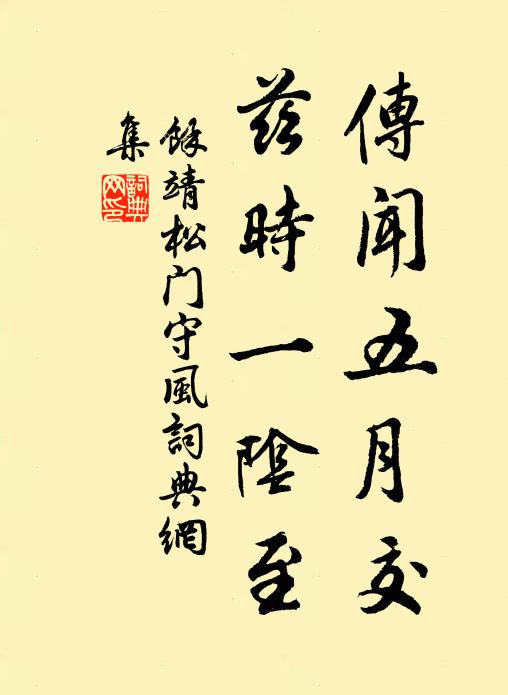 傳聞五月交
茲時一陰至
餘靖松门守風詞典網
集
詞典網印